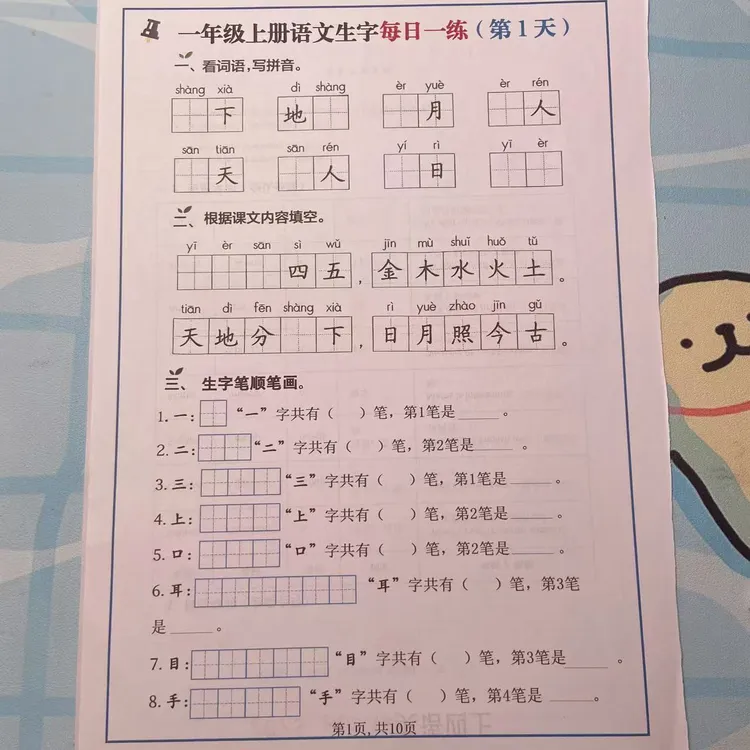 一年级上册语文生字每日一练（第1天）
一、看词语，写拼音。
shàng xià dì shàng èr yuè èr rén
下 地 月 人
sān tiān sān rén yí rì yī èr
天 人 日
二、根据课文内容填空。
yī èr sān sì wǔ jīn mù shuǐ huǒ tǔ
四五，金木水火土。
tiān dì fēn shàng xià rì yuè zhào jīn gǔ
天地分 下，日月照今古。
三、生字笔顺笔画。
1. 一： “一”字共有（ ）笔，第1笔是_____。
2. 二： “二”字共有（ ）笔，第2笔是_____。
3. 三： “三”字共有（ ）笔，第1笔是_____。
4. 上： “上”字共有（ ）笔，第2笔是_____。
5. 口： “口”字共有（ ）笔，第2笔是_____。
6. 耳： “耳”字共有（ ）笔，第3笔
是_____。
7. 目： “目”字共有（ ）笔，第3笔是_____。
8. 手： “手”字共有（ ）笔，第4笔是_____。
第1页，共10页